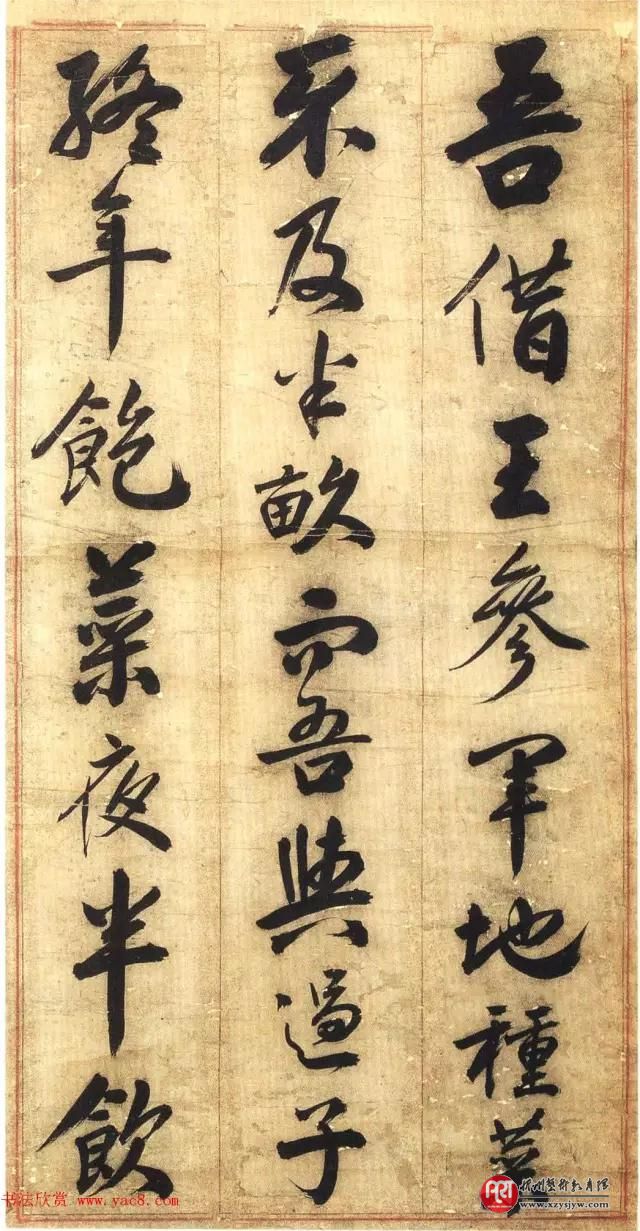 吾借王參軍地種菜
不及半畝而吾與過子
終年飽菜夜半飲
书法欣赏 www.yac8.com
ART 杭州艺术教育网
www.xzysjyw.com